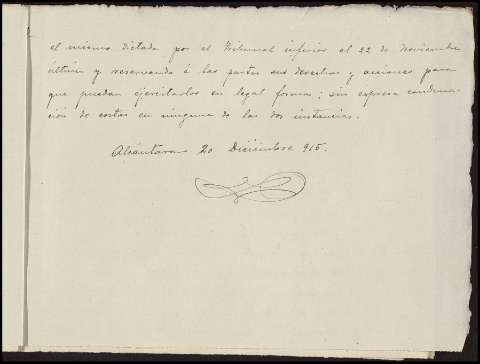 el mismo dictado por el Tribunal inferior el 22 de Noviembre
último y reservando á las partes sus derechos y acciones para
que puedan ejercitarlos en legal forma; sin expresa condena-
ción de costas en ninguna de las dos instancias.
Alcántara 20 Diciembre 915.